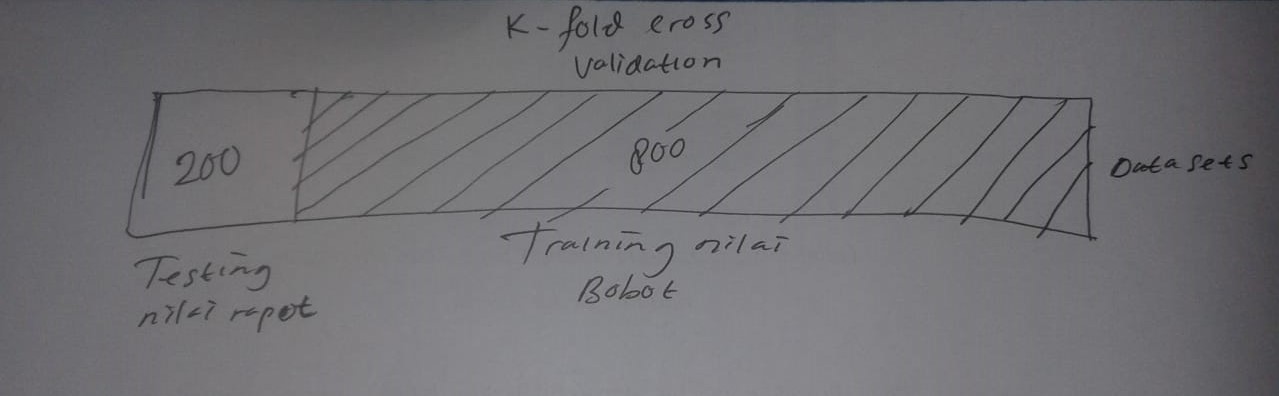 K-fold cross
validation
200
800
Datasets
Testing
nilai rapot
Training nilai
Bobot